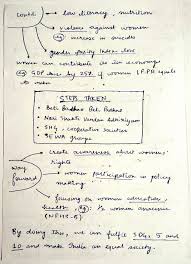 Contd.
→ low literacy, nutrition
→ violence against women
eg increase in suicides
→ gender parity Index low
women can contribute to its economy
eg GDP rise by 25% if women LFPR equals
to male
STEPS TAKEN
- Beti Bachao Beti Padhao
- Nari Shakti Vandan Adhiniyam
- SHG, cooperative societies
- SEWA groups
way forward
→ create awareness about women's
rights
→ women participation in policy
making
→ focusing on women education,
health eg: 1/2 women anaemic
(NFHS-5)
By doing this, we can fulfil SDGs 5 and
10 and make India an equal society.